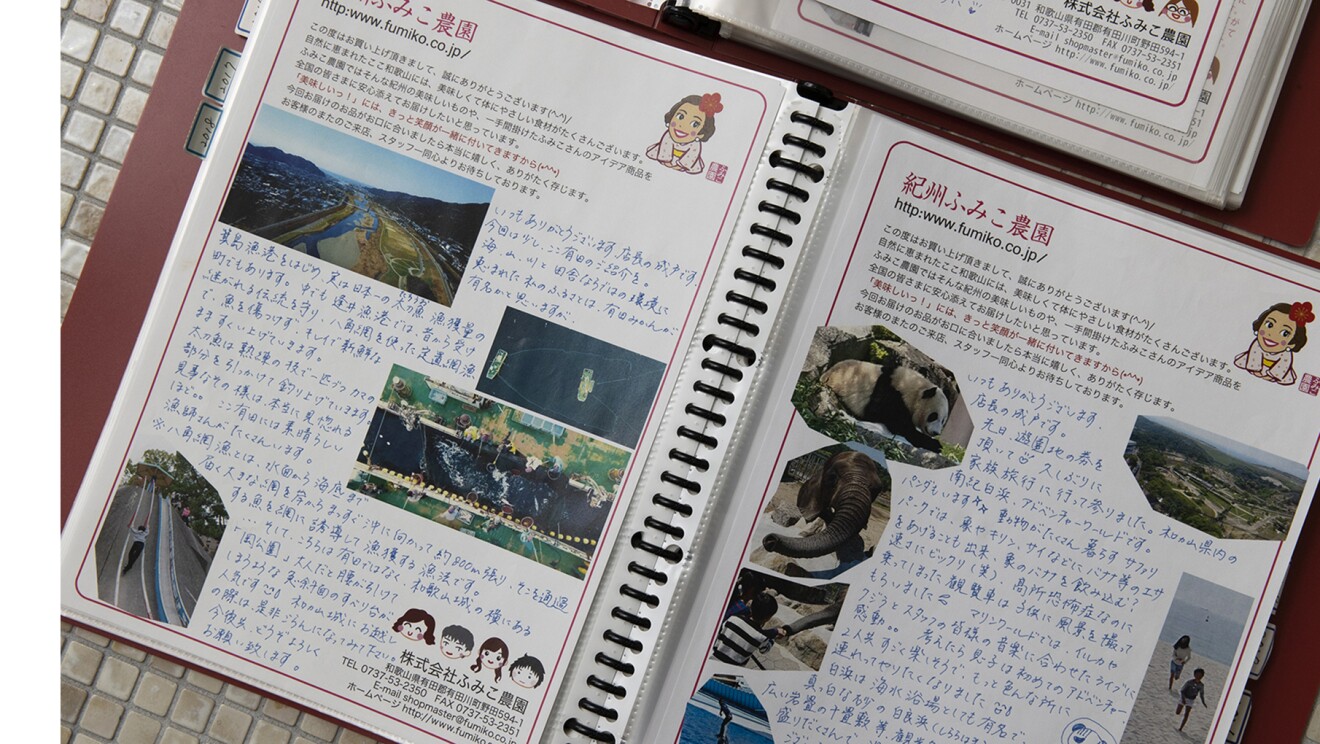 ふみこ農園
http:www.fumiko.co.jp/
この度はお買い上げ頂きまして、誠にありがとうございます(^-^)/
自然に恵まれたここ和歌山には、美味しくて体にやさしい食材がたくさんございます。
ふみこ農園ではそんな紀州の美味しいものや、一手間掛けたふみこさんのアイデア商品を
全国の皆さまに安心添えてお届けしたいと思っています。
「美味しいっ！」には、きっと笑顔が一緒に付いてきますから(*^^*)
今回お届けのお品がお口に合いましたら本当に嬉しく、ありがたく存じます。
お客様のまたのご来店、スタッフ一同心よりお待ちしております。
いつもありがとうございます。店長の成戸です。
今回は少し、ここ有田のご紹介を。
海、山、川と田舎ならではの環境に
恵まれた私のふるさとは、有田みかんが
有名かと思いますが、
箕島漁港をはじめ、実は日本一の太刀魚漁獲量の
町でもあります。中でも逢井漁港では、昔から受け
継がれる伝統を守り、八角網を使った定置網漁
で、魚を傷つけず、そして新鮮な
まますくい上げています。
太刀魚は熟練の技で一匹づつカマの
部分を引っかけて釣り上げていきます。
見事なその様は、本当に見惚れる
ほど。。ここ有田には素晴らしい
漁師さんがたくさんいます。
※八角網漁とは、水面から海底まで
届く大きな網を岸からまっすぐ沖に向かって約800m張り、そこを通過
する魚を網に誘導して漁獲する漁法です。
…そして、こちらは有田ではなく、和歌山城の横にある
岡公園。大人だと腰が引けて
しまうような急斜面のすべり台が
人気です。和歌山城にお越し
の際は、是非ごらんになってみて下さい。
今後共、どうぞよろしく
お願い致します。
株式会社ふみこ農園
和歌山県有田郡有田川町野田594-1
TEL 0737-53-2350 FAX 0737-53-2351
E-mail shopmaster@fumiko.co.jp
ホームページ http://www.fumiko.co.jp/
株式会社ふみこ農園
0031 和歌山県有田郡有田川町野田594-1
TEL 0737-53-2350 FAX 0737-53-2351
E-mail shopmaster@fumiko.co.jp
ホームページ http://www.fumiko.co.jp/
ホームページ http://www.fumiko.co.jp
紀州ふみこ農園
http:www.fumiko.co.jp/
この度はお買い上げ頂きまして、誠にありがとうございます(^-^)/
自然に恵まれたここ和歌山には、美味しくて体にやさしい食材がたくさんございます。
ふみこ農園ではそんな紀州の美味しいものや、一手間掛けたふみこさんのアイデア商品を
全国の皆さまに安心添えてお届けしたいと思っています。
「美味しいっ！」には、きっと笑顔が一緒に付いてきますから(*^^*)
今回お届けのお品がお口に合いましたら本当に嬉しく、ありがたく存じます。
お客様のまたのご来店、スタッフ一同心よりお待ちしております。
いつもありがとうございます。
店長の成戸です。
先日、遊園地の券を
頂いて 久しぶりに
家族旅行に行って参りました。和歌山県内の
南紀白浜、アドベンチャーワールドです。
パンダもいます 動物がたくさん暮らすサファリ
パークでは、象やキリン、サイなどにバナナ等のエサ
をあげることも出来、象のバナナを飲み込む？
速さにビックリ(笑)、高所恐怖症なのに
乗ってしまった観覧車は子供に風景を撮って
もらいました マリンワールドでは、イルカや
クジラとスタッフの皆様の音楽に合わせたライブに
感動。。 考えたら息子は初めてのアドベンチャー
2人共すごく楽しそうで、もっと色んな所に
連れてってやりたくなりました
白浜は海水浴場としても有名で
真っ白な砂の白良浜(しららはま
広い岩畳の千畳敷等、観
盛りだくさんで